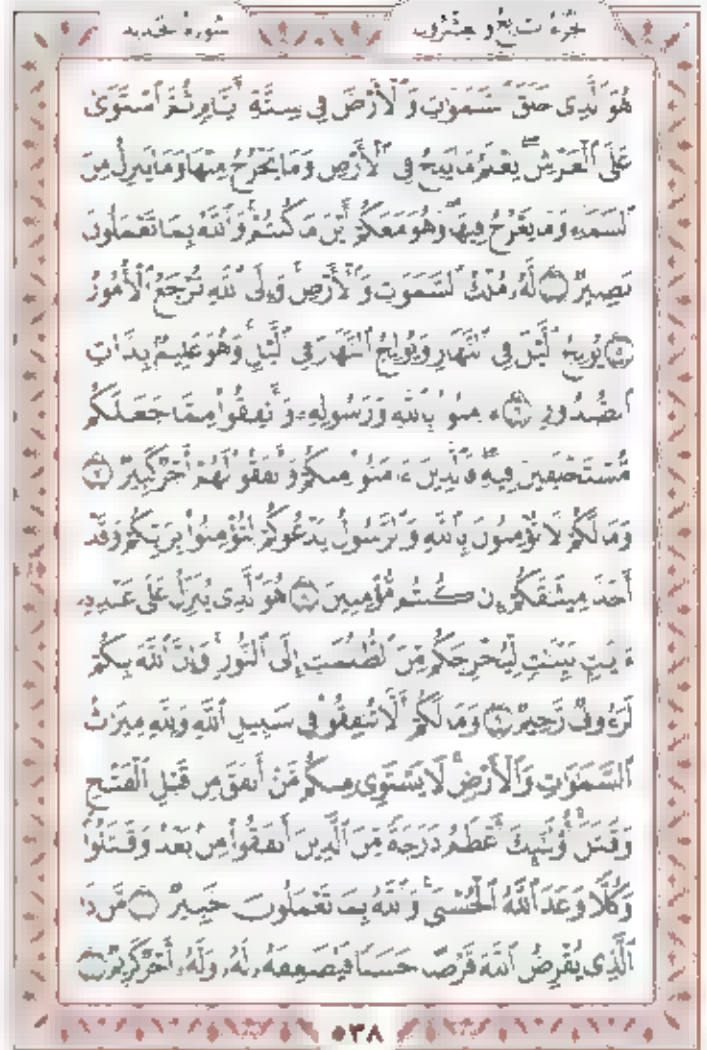 جزء بیست و هفتم سورة الحديد
هُوَ ٱلَّذِى خَلَقَ ٱلسَّمَٰوَٰتِ وَٱلْأَرْضَ فِى سِتَّةِ أَيَّامٍ ثُمَّ ٱسْتَوَىٰ
عَلَى ٱلْعَرْشِ يَعْلَمُ مَا يَلِجُ فِى ٱلْأَرْضِ وَمَا يَخْرُجُ مِنْهَا وَمَا يَنزِلُ مِنَ
ٱلسَّمَآءِ وَمَا يَعْرُجُ فِيهَا وَهُوَ مَعَكُمْ أَيْنَ مَا كُنتُمْ وَٱللَّهُ بِمَا تَعْمَلُونَ
بَصِيرٌ ۝٤ لَّهُۥ مُلْكُ ٱلسَّمَٰوَٰتِ وَٱلْأَرْضِ وَإِلَى ٱللَّهِ تُرْجَعُ ٱلْأُمُورُ
۝٥ يُولِجُ ٱلَّيْلَ فِى ٱلنَّهَارِ وَيُولِجُ ٱلنَّهَارَ فِى ٱلَّيْلِ وَهُوَ عَلِيمٌۢ بِذَاتِ
ٱلصُّدُورِ ۝٦ ءَامِنُوا۟ بِٱللَّهِ وَرَسُولِهِۦ وَأَنفِقُوا۟ مِمَّا جَعَلَكُم
مُّسْتَخْلَفِينَ فِيهِ فَٱلَّذِينَ ءَامَنُوا۟ مِنكُمْ وَأَنفَقُوا۟ لَهُمْ أَجْرٌ كَبِيرٌ ۝٧
وَمَا لَكُمْ لَا تُؤْمِنُونَ بِٱللَّهِ وَٱلرَّسُولُ يَدْعُوكُمْ لِتُؤْمِنُوا۟ بِرَبِّكُمْ وَقَدْ
أَخَذَ مِيثَٰقَكُمْ إِن كُنتُم مُّؤْمِنِينَ ۝٨ هُوَ ٱلَّذِى يُنَزِّلُ عَلَىٰ عَبْدِهِۦٓ
ءَايَٰتٍۭ بَيِّنَٰتٍ لِّيُخْرِجَكُم مِّنَ ٱلظُّلُمَٰتِ إِلَى ٱلنُّورِ وَإِنَّ ٱللَّهَ بِكُمْ
لَرَءُوفٌ رَّحِيمٌ ۝٩ وَمَا لَكُمْ أَلَّا تُنفِقُوا۟ فِى سَبِيلِ ٱللَّهِ وَلِلَّهِ مِيرَٰثُ
ٱلسَّمَٰوَٰتِ وَٱلْأَرْضِ لَا يَسْتَوِى مِنكُم مَّنْ أَنفَقَ مِن قَبْلِ ٱلْفَتْحِ
وَقَٰتَلَ أُو۟لَٰٓئِكَ أَعْظَمُ دَرَجَةً مِّنَ ٱلَّذِينَ أَنفَقُوا۟ مِنۢ بَعْدُ وَقَٰتَلُوا۟
وَكُلًّا وَعَدَ ٱللَّهُ ٱلْحُسْنَىٰ وَٱللَّهُ بِمَا تَعْمَلُونَ خَبِيرٌ ۝١٠ مَّن ذَا
ٱلَّذِى يُقْرِضُ ٱللَّهَ قَرْضًا حَسَنًا فَيُضَٰعِفَهُۥ لَهُۥ وَلَهُۥٓ أَجْرٌ كَرِيمٌ ۝١١
٥٣٨